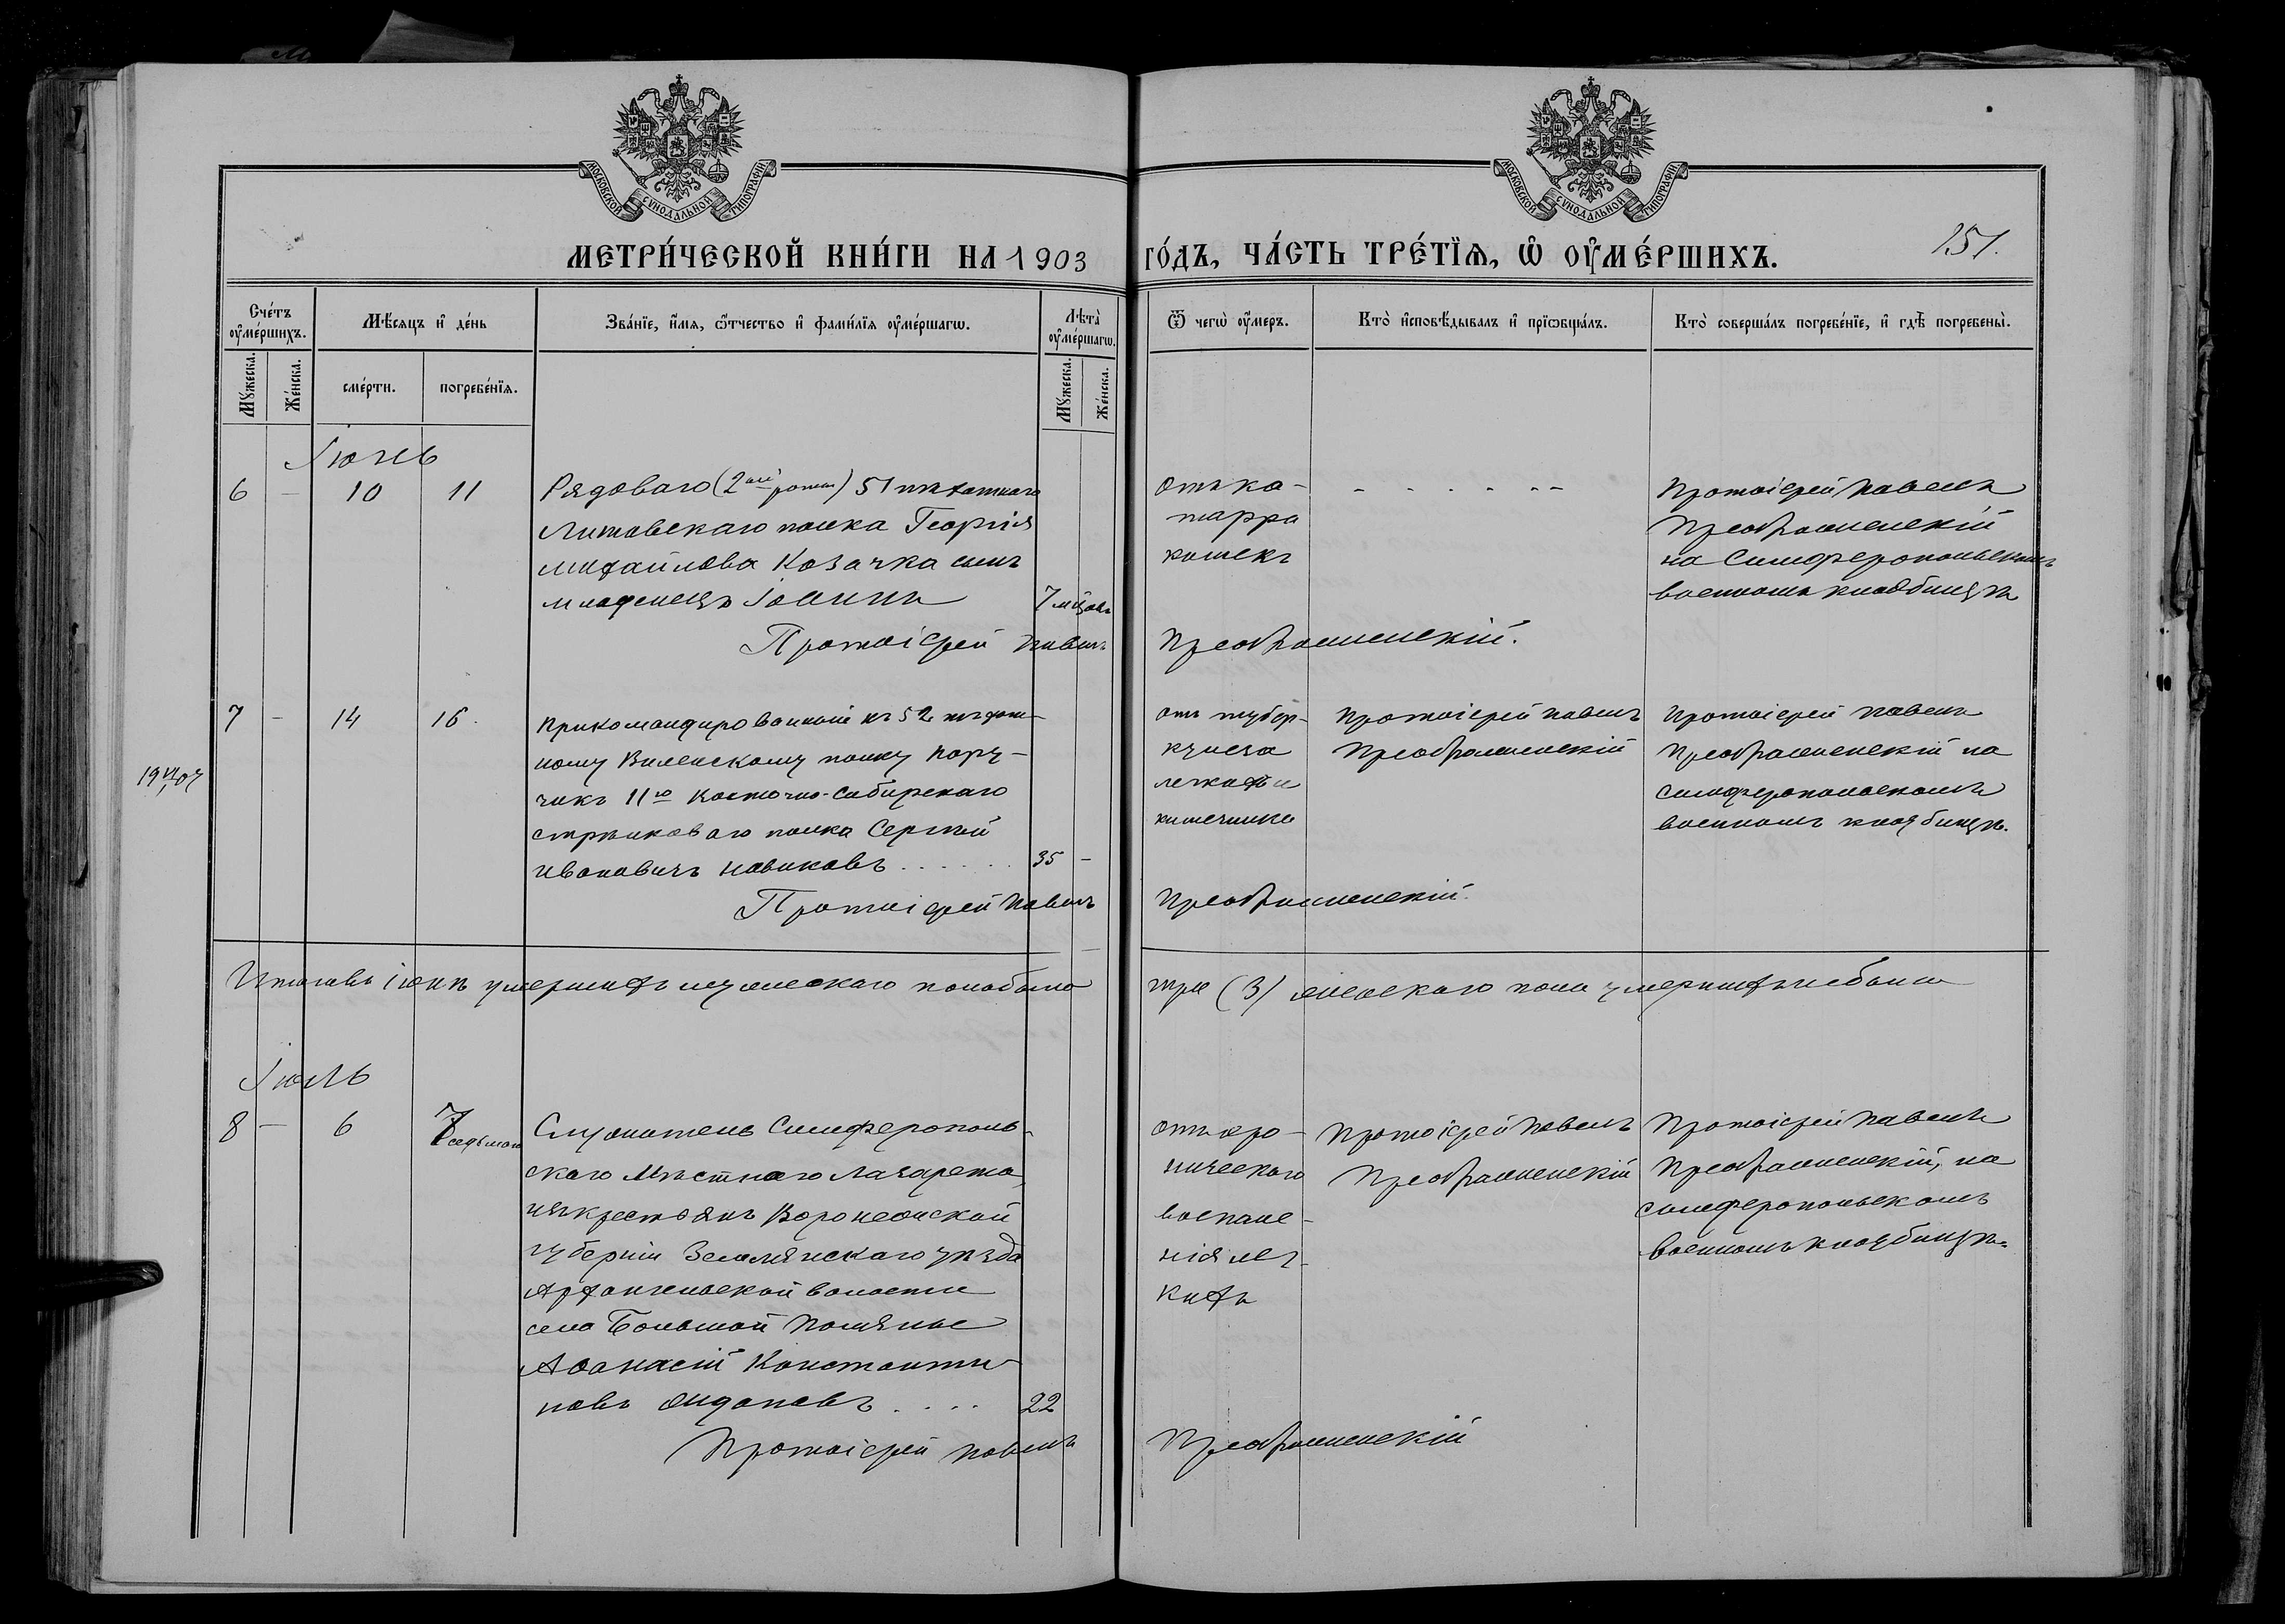 МОСКОВСКОЙ СѴНОДАЛЬНОЙ ТИПОГРАФІИ
МОСКОВСКОЙ СѴНОДАЛЬНОЙ ТИПОГРАФІИ
МЕТРИ́ЧЕСКОЙ КНИ́ГИ НА 1903 ГО́ДЪ, ЧА́СТЬ ТРЕ́ТЇѦ, Ѡ҆ ОУ҆МЕ́РШИХЪ.
151.
Сче́тъ оу҆ме́ршихъ.
Мѣ́сѧцъ и҆ де́нь
Зва́нїе, и҆́мѧ, ѻ҆́тчество и҆ фами́лїѧ оу҆ме́ршагѡ.
Лѣта̀ оу҆ме́ршагѡ.
Ѿ чегѡ̀ оу҆́меръ.
Кто̀ и҆сповѣ́дывалъ и҆ прїѡбща́лъ.
Кто̀ соверша́лъ погребе́нїе, и҆ гдѣ̀ погребены̀.
Мꙋ́жеска.
Же́нска.
сме́рти.
погребе́нїѧ.
Мꙋ́жеска.
Же́нска.
Іюнь
6 – 10 11
Рядоваго (2ой роты) 51 пѣхотнаго
Литовскаго полка Георгія
Михайлова Козачка сынъ
младенецъ Іоаннъ 7 мѣсяц.
Отъ ка-
тарра
кишекъ
- - - - - - -
Протоіерей Павелъ
Преображенскій
на Симферопольскомъ
военномъ кладбищѣ
Протоіерей Павелъ Преображенскій.
7 – 14 16.
Прикомандированный къ 52 пѣхот-
ному Виленскому полку Пору-
чикъ 11го Восточно-Сибирскаго
стрѣлковаго полка Сергѣй
Ивановичъ Новиковъ . . . . . . 35 –
отъ тубер-
кулеза
легкихъ и
кишечника
Протоіерей Павелъ
Преображенскій
Протоіерей Павелъ
Преображенскій на
Симферопольскомъ
военномъ кладбищѣ.
Протоіерей Павелъ Преображенскій.
Итого въ іюнѣ умершихъ мужескаго пола было три (3) женскаго пола умершихъ не было
Іюль
8 – 6 7 седьмого
Служитель Симферополь-
скаго Мѣстнаго Лазарета,
изъ крестьянъ Воронежской
губерніи Землянскаго уѣзда
Архангельской волости
села Большой Поляны
Аѳанасій Константи-
новъ . . . . 22
отъ хро-
ническаго
воспале-
нія лег-
кихъ
Протоіерей Павелъ
Преображенскій
Протоіерей Павелъ
Преображенскій, на
Симферопольскомъ
военномъ кладбищѣ.
Протоіерей Павелъ Преображенскій